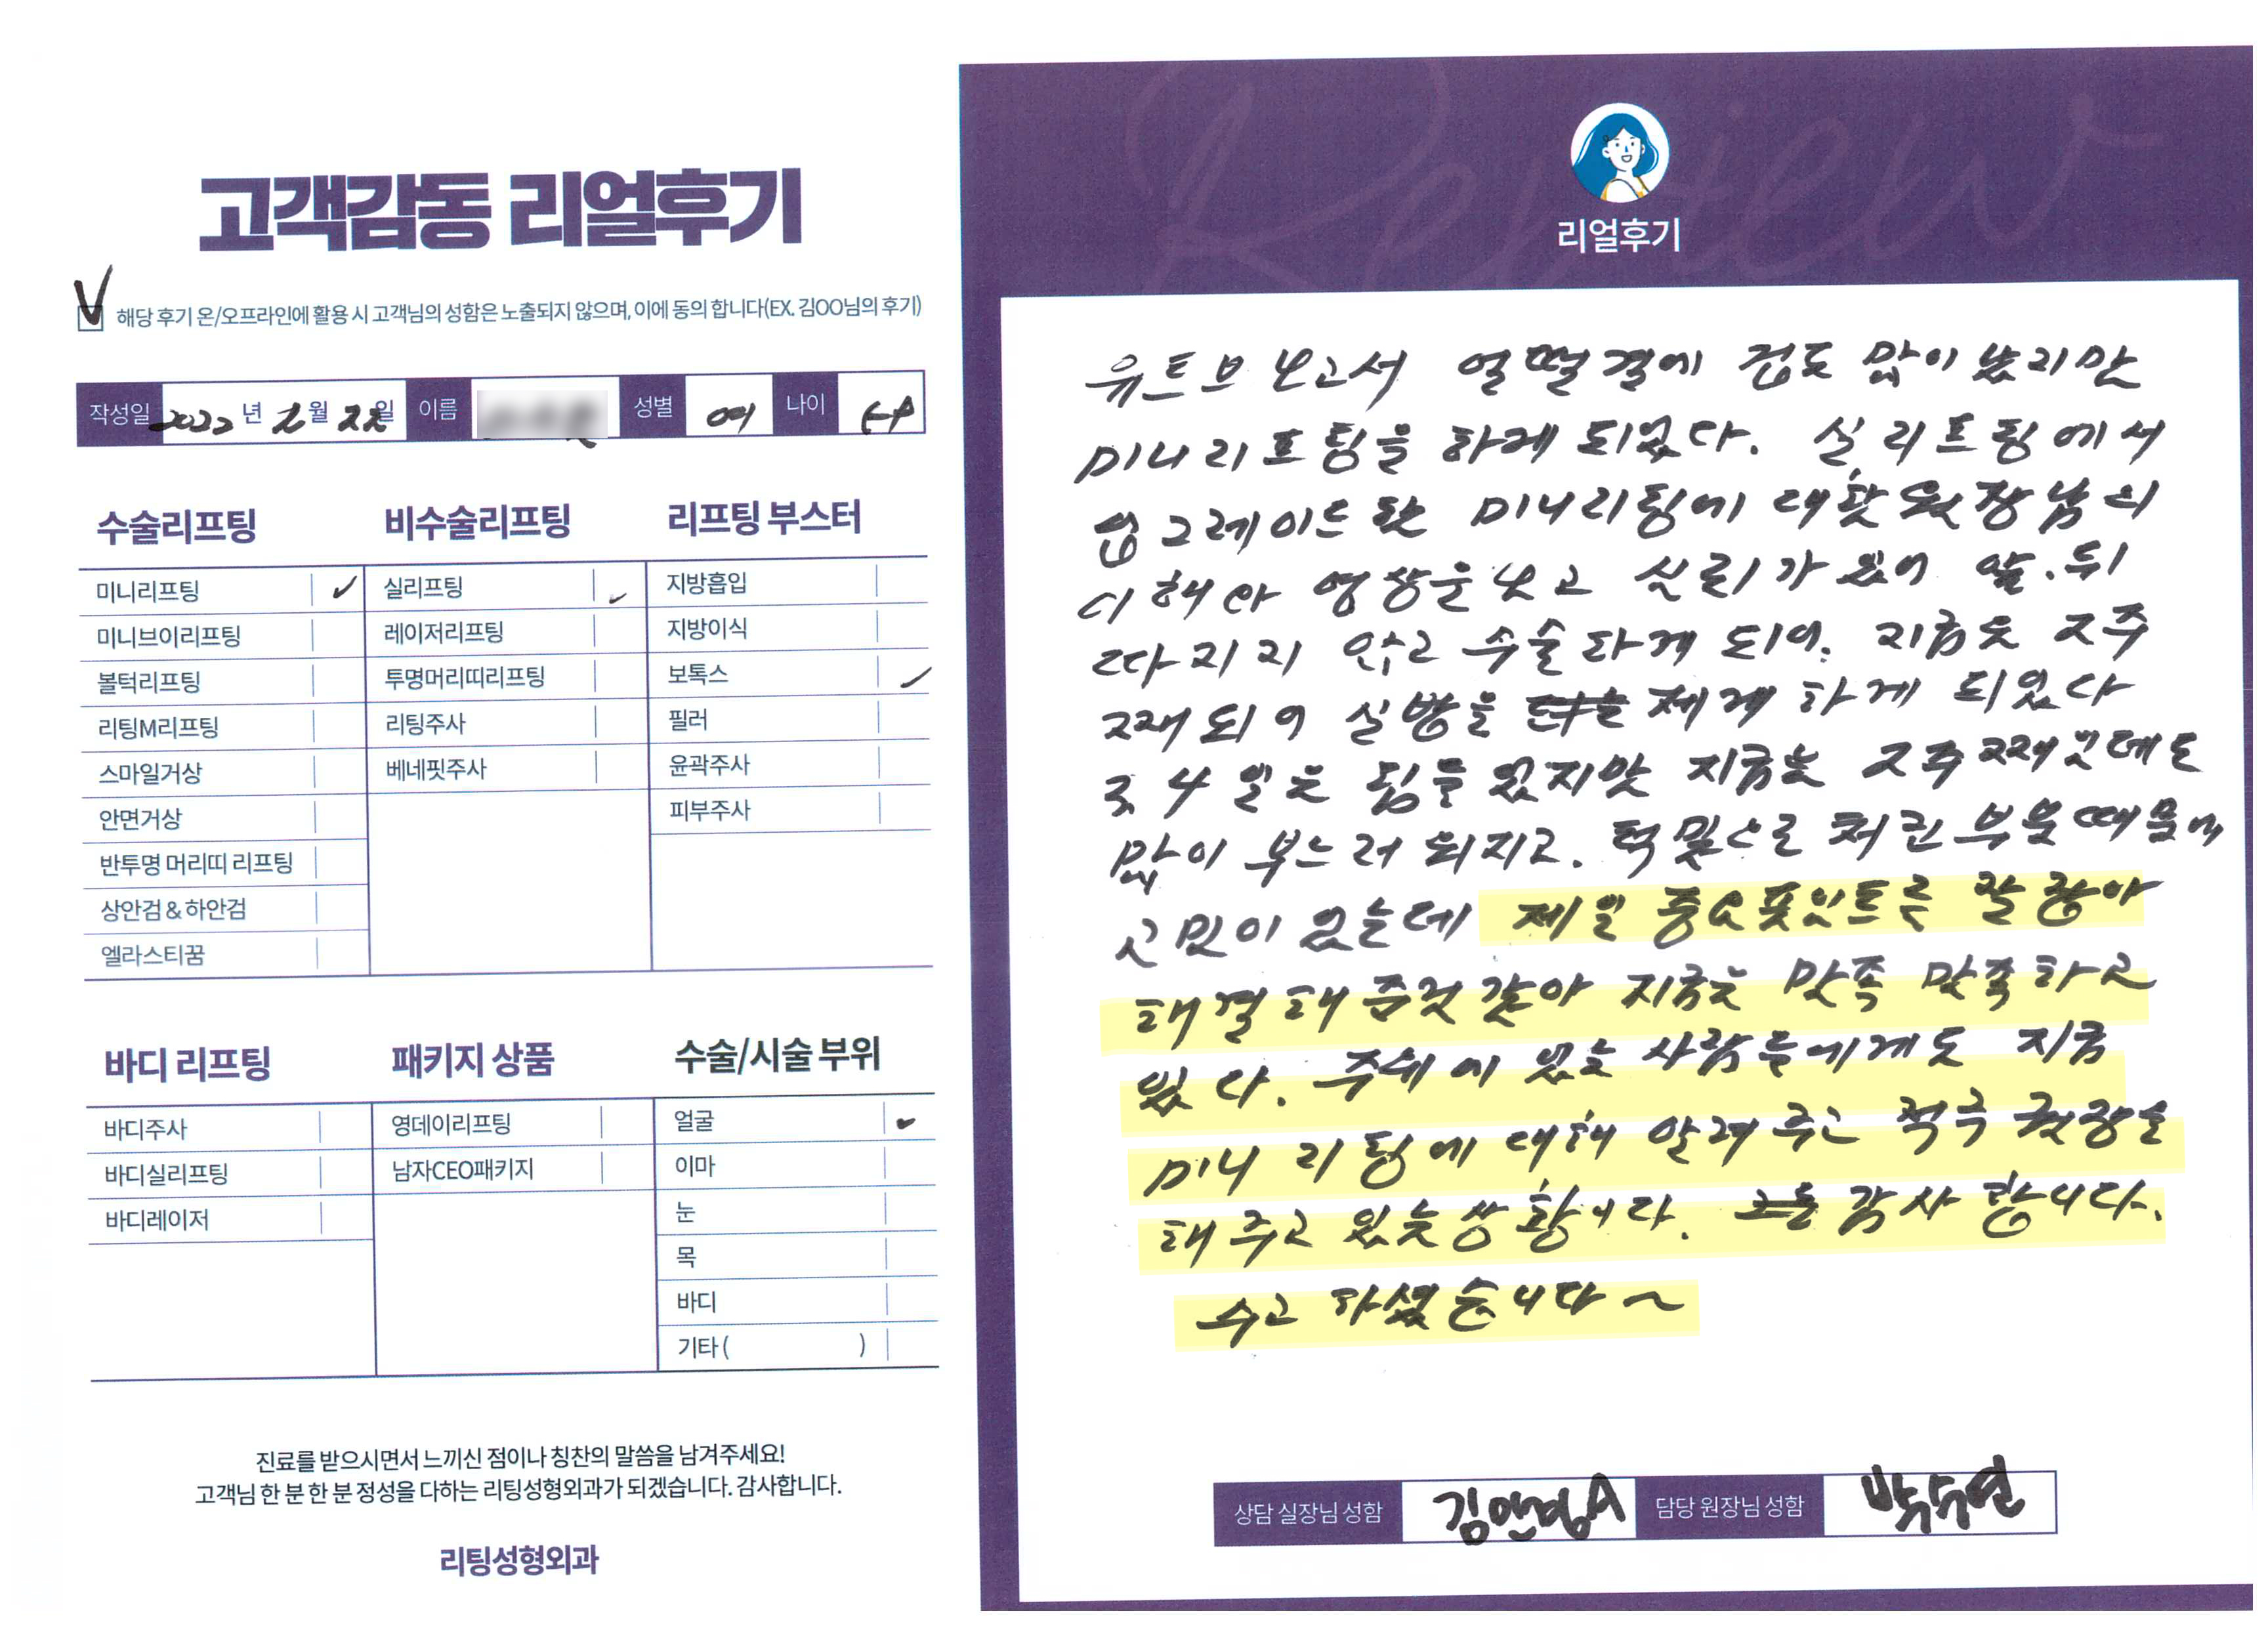 고객감동 리얼후기
해당 후기 온/오프라인에 활용 시 고객님의 성함은 노출되지 않으며, 이에 동의 합니다(EX. 김OO님의 후기)
작성일 2022 년 월 22일 이름 성별 여 나이
수술리프팅
미니리프팅
미니브이리프팅
볼턱리프팅
리팅M리프팅
스마일거상
안면거상
반투명 머리띠 리프팅
상안검 & 하안검
엘라스티꿈
비수술리프팅
실리프팅
레이저리프팅
투명머리띠리프팅
리팅주사
베네핏주사
리프팅 부스터
지방흡입
지방이식
보톡스
필러
윤곽주사
피부주사
바디 리프팅
바디주사
바디실리프팅
바디레이저
패키지 상품
영데이리프팅
남자CEO패키지
수술/시술 부위
얼굴
이마
눈
목
바디
기타 ( )
진료를 받으시면서 느끼신 점이나 칭찬의 말씀을 남겨주세요!
고객님 한 분 한 분 정성을 다하는 리팅성형외과가 되겠습니다. 감사합니다.
리팅성형외과
Review
리얼후기
유트브 보고서 얼떨결에 겁도 많이 났지만
미니리프팅을 하게 되었다. 실리프팅에서
업그레이드 한 미니리팅에 대한 원장님의
이해와 영상을 보고 신뢰가 있어 앞.뒤
따지지 않고 수술 하게 되어. 지금은 2주
째 되어 실밥을 제게 하게 되었다
3, 4일은 힘들었지만 지금은 2주째인데도
많이 부드러워지고. 턱밑으로 처진 부분 때문에
고민이 있는데 제일 중요포인트를 잘 잡아
해결해 준것 같아 지금은 만족 만족하고
있다. 주위에 있는 사람들에게도 지금
미니 리팅에 대해 알려주고 적극 권장을
해주고 있는 상황이다. 감사합니다.
수고 하셨습니다~
상담 실장님 성함 담당 원장님 성함 박수연